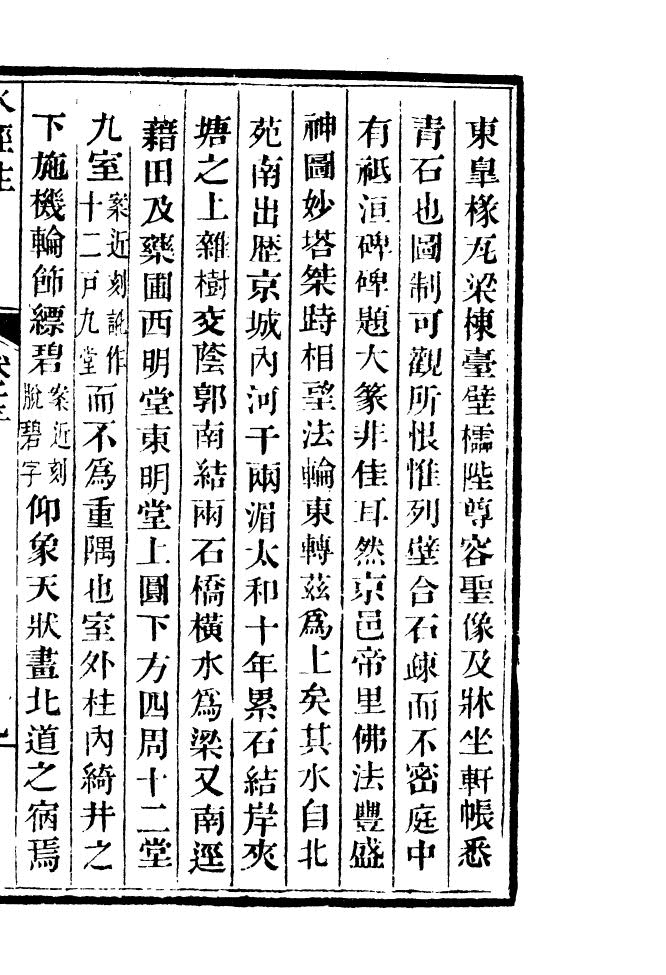 東皇椽瓦梁棟臺壁櫺陛尊容聖像及牀坐軒帳悉
青石也圖制可觀所恨惟列壁合石疎而不密庭中
有祇洹碑碑題大篆非佳耳然京邑帝里佛法豐盛
神圖妙塔桀跱相望法輪東轉兹爲上矣其水自北
苑南出歴京城內河干兩湄太和十年累石結岸夾
塘之上雜樹交蔭郭南結兩石橋橫水爲梁又南逕
藉田及藥圃西明堂東明堂上圓下方四周十二堂
九室案近刻訛作十二戸九堂而不爲重隅也室外柱內綺井之
下施機輪飾縹碧案近刻脫碧字仰象天狀畫北道之宿焉
水經注 卷十三